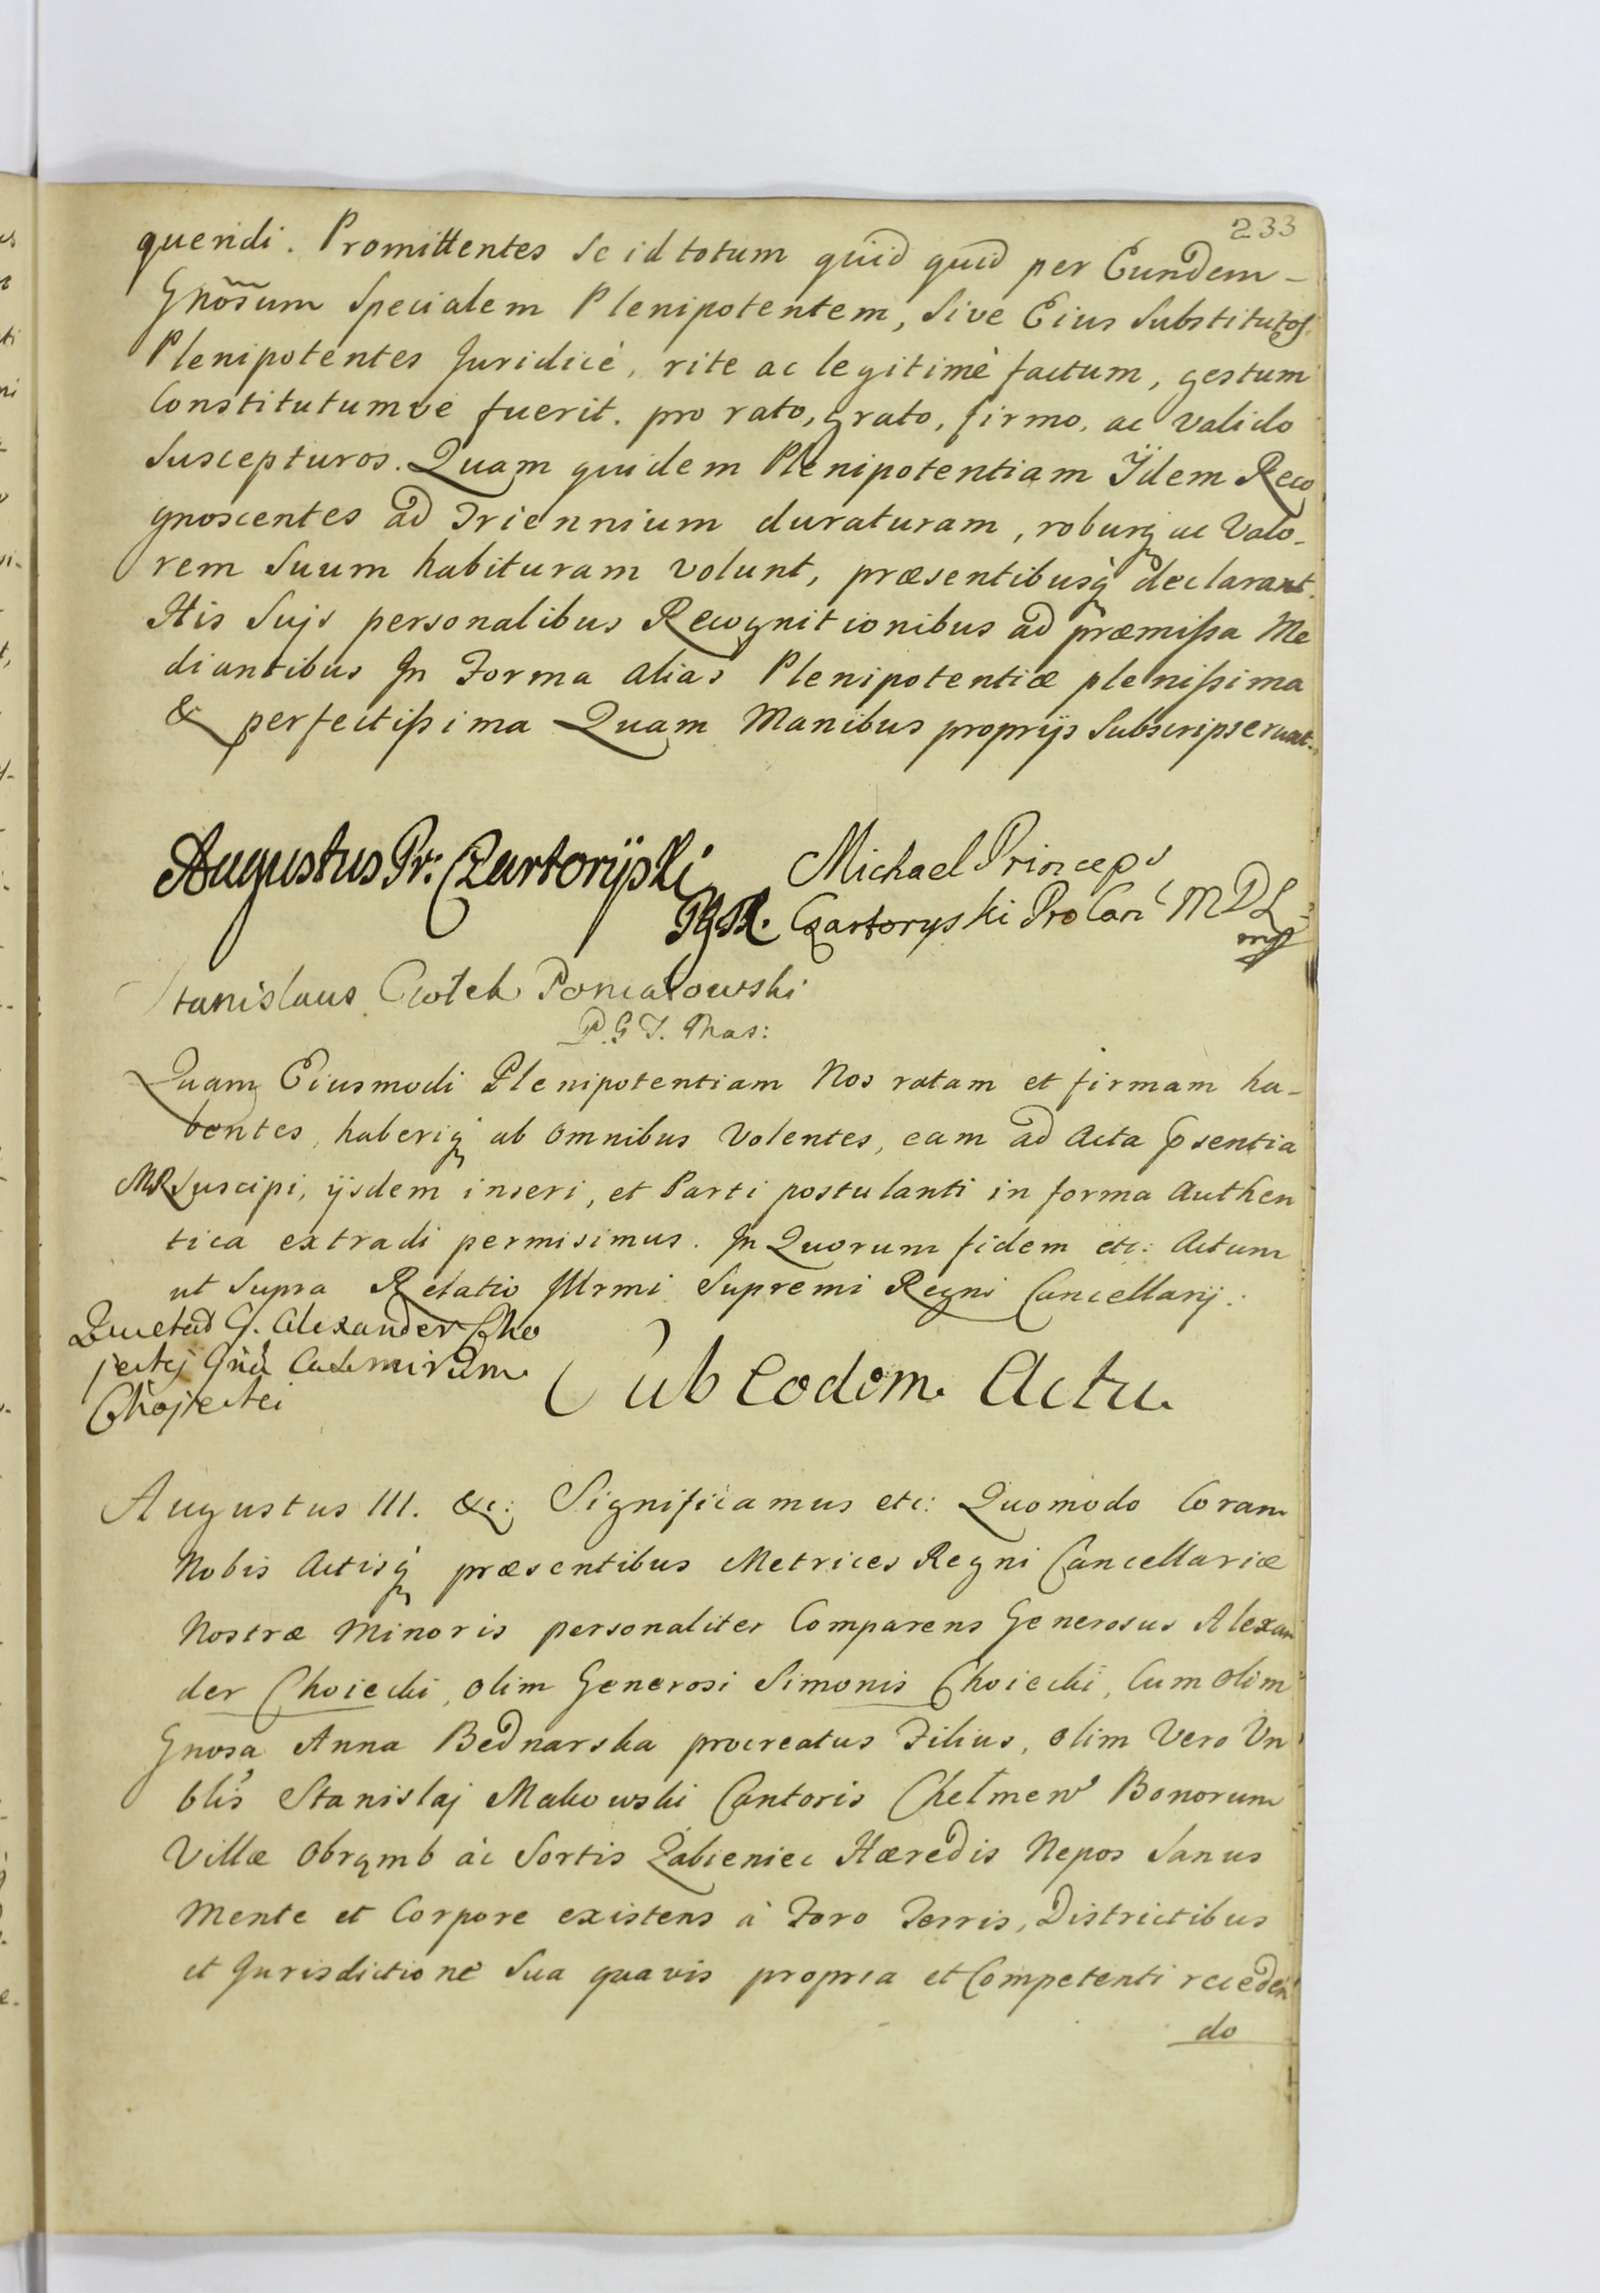 233
queridi. Promittentes se id totum quid quid per Eundem-
Gnõsum Specialem Plenipotentem, Sive Eius Substitutos
Plenipotentes Juridicè, rite ac legitimè factum, gestum
Constitutumve fuerit. pro rato, grato, firmo, ac valido
Suscepturos. Quam quidem Plenipotentiam Ijdem Reco
gnoscentes ad Triennium duraturam, roburq ac Valo-
rem Suum habituram volunt, præsentibusq declarant.
His Sujs personalibus Recognitionibus ad præmissa Me
diantibus In Forma alias Plenipotentiæ plenissima
& perfectissima Quam Manibus proprijs Subscripserunt.
Augustus Pr: Czartoryski Michael Princeps
PGR. Czartoryski ProCan MDL
mp
Stanislaus Ciołek Poniatowski
P.G.T. Mas:
Quam Eiusmodi Plenipotentiam Nos ratam et firmam ha-
bentes, haberiq ab omnibus Volentes, eam ad Acta psentia
MR Suscipi, ijsdem inseri, et Parti postulanti in forma Authen
tica extradi permisimus. In Quorum fidem etc: Actum
ut Supra Relatio Illrmi Supremi Regni Cancellarij:
Quietat G. Alexander Cho
jectij Gnũ Casimirum
Chojecki
Sub Eodem Actu
Augustus III. &c: Significamus etc: Quomodo Coram
Nobis Actisq præsentibus Metrices Regni Cancellariæ
Nostræ Minoris personaliter Comparens Generosus Alexan
der Choiecki, olim Generosi Simonis Choiecki, Cum olim
Gnosa Anna Bednarska procreatus Filius, olim Vero Vn
blis Stanislaj Makowski Cantoris Chełmen Bonorum
Villæ Obrąmb ac Sortis Żabieniec Hæredis Nepos Sanus
Mente et Corpore existens à Foro Terris, Districtibus
et Jurisdictione Sua quavis propria et Competenti receden
do